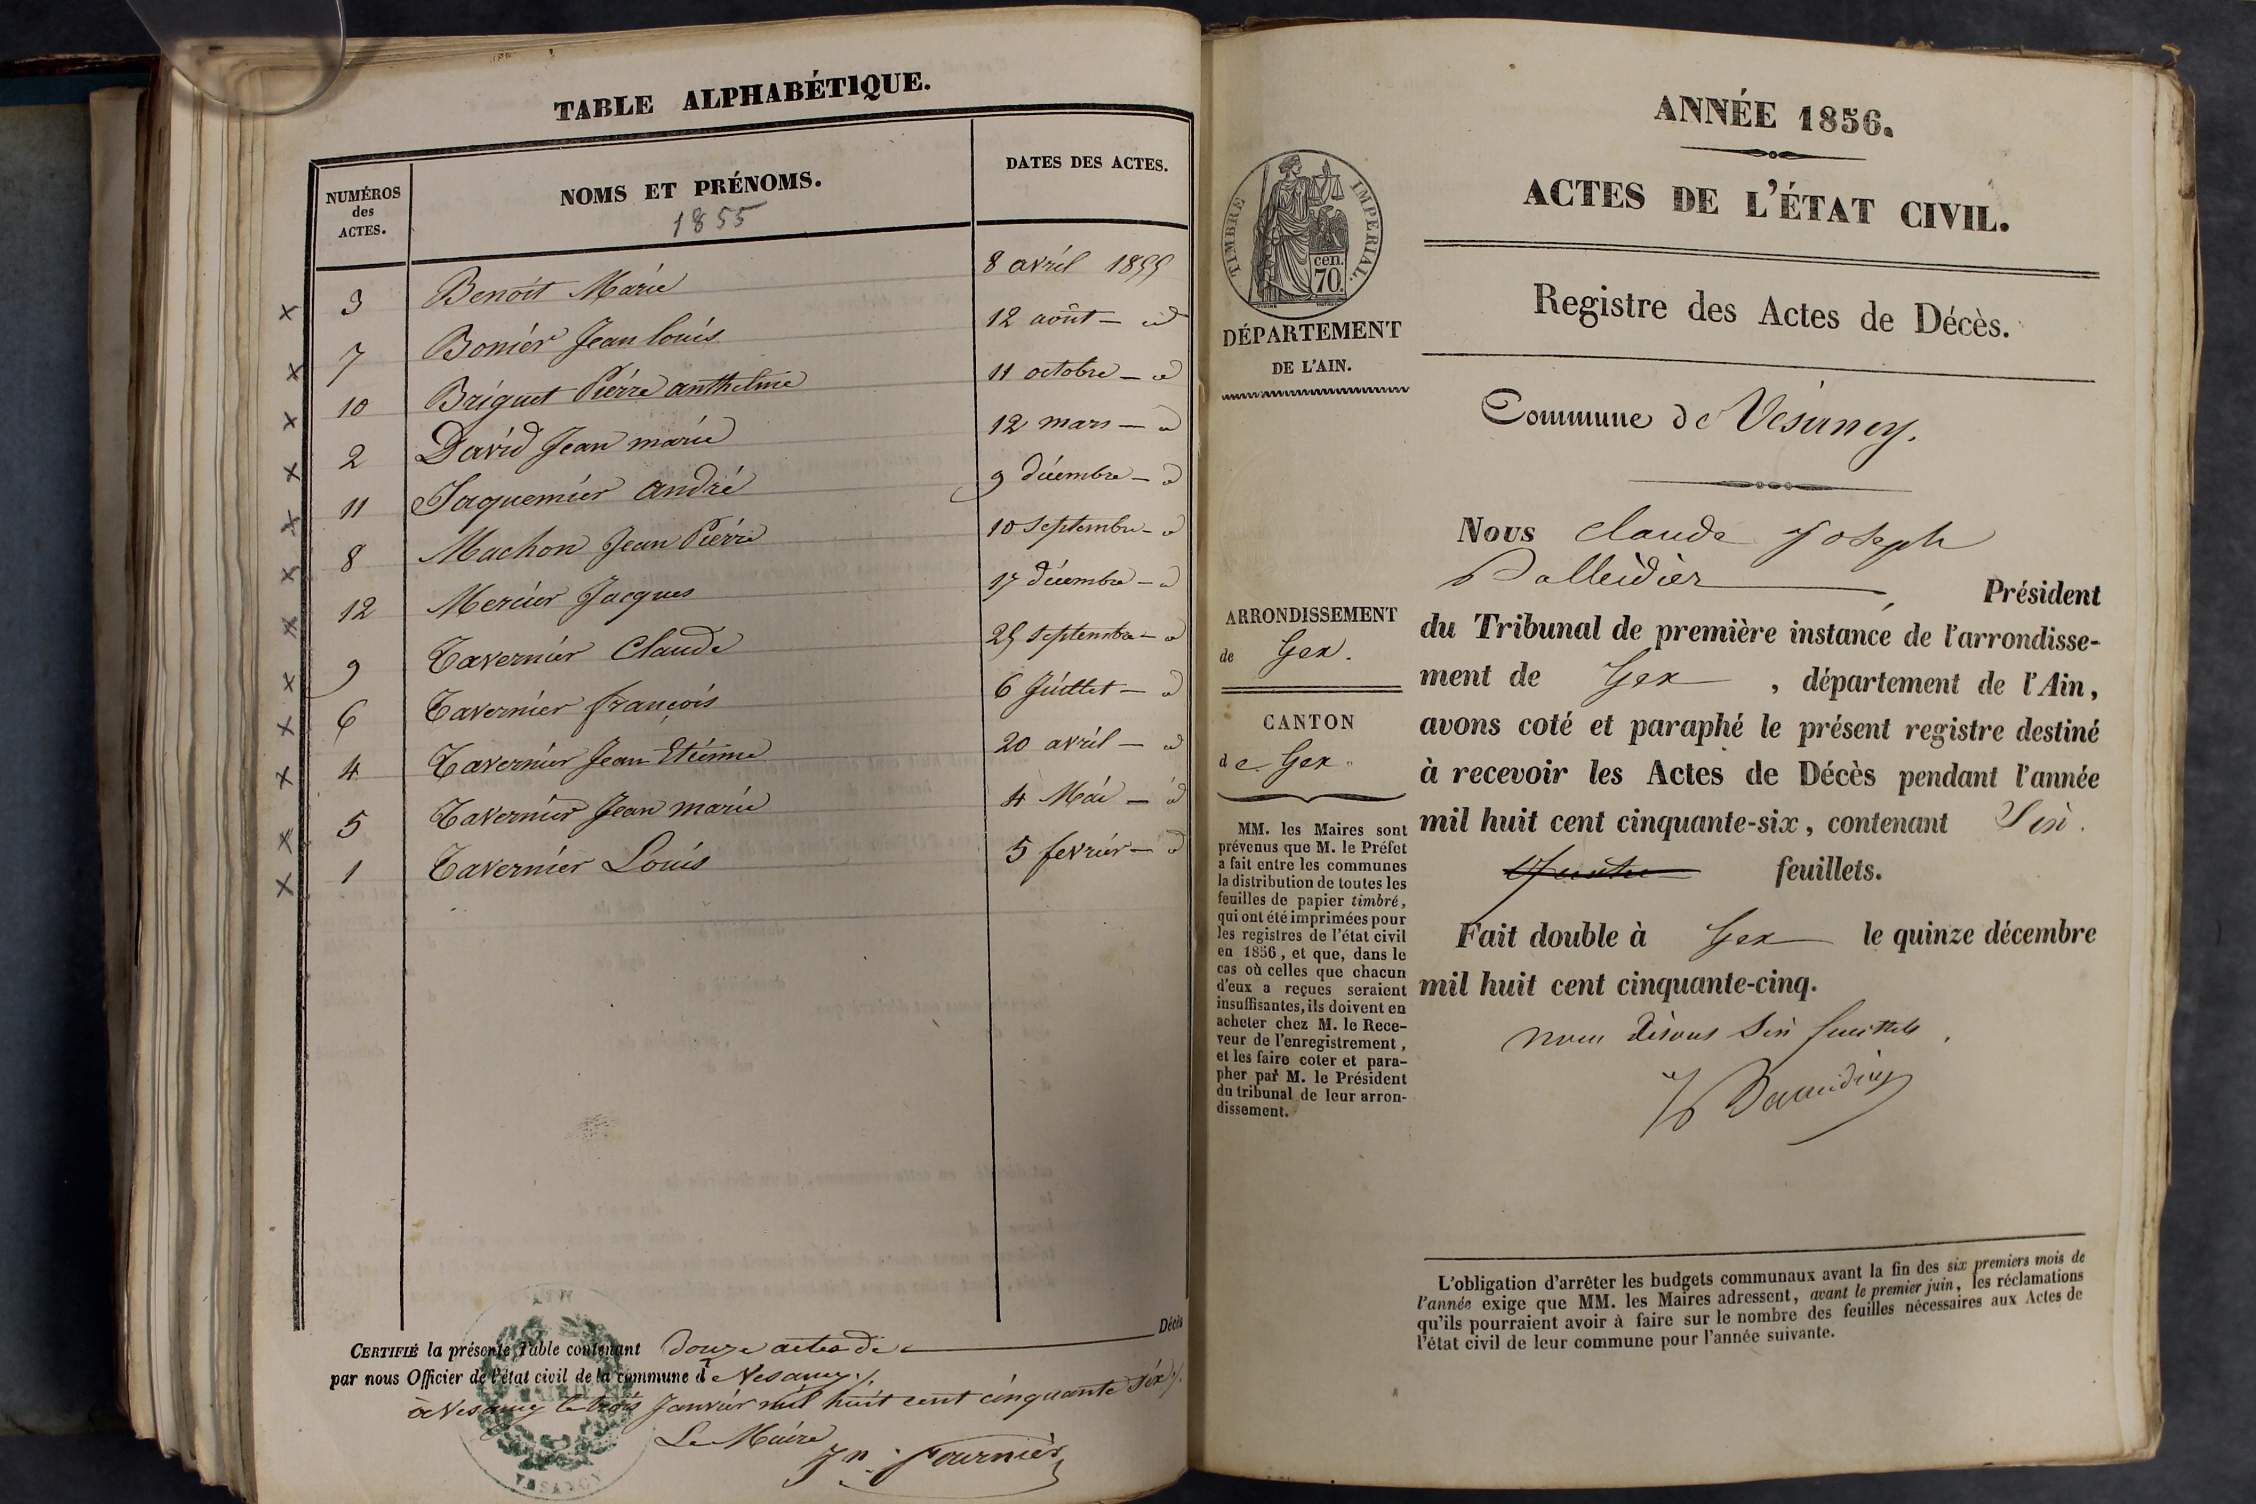 TABLE ALPHABÉTIQUE.
NUMÉROS des ACTES.
NOMS ET PRÉNOMS.
1855
DATES DES ACTES.
3 Benoit Marie 8 avril 1855
7 Bonier Jean louis 12 août — id
10 Briguet Pierre anthelme 11 octobre — id
2 David Jean marie 12 mars — id
11 Jaquemier andré 9 décembre — id
8 Machon Jean Pierre 10 septembre — id
12 Mercier Jacques 17 décembre — id
9 Tavernier Claude 25 septembre — id
6 Tavernier françois 6 Juillet — id
4 Tavernier Jean Etienne 20 avril — id
5 Tavernier Jean marie 4 Mai — id
1 Tavernier Louis 5 fevrier — id
CERTIFIÉ la présente Table contenant douze actes de Décès
par nous Officier de l'état civil de la commune de Vesancy
à Vesancy le trois Janvier mil huit cent cinquante six
Le Maire
Jn. Fournier
VESANCY
ANNÉE 1856.
ACTES DE L'ÉTAT CIVIL.
Registre des Actes de Décès.
TIMBRE IMPÉRIAL.
70 cen.
DÉPARTEMENT
DE L'AIN.
ARRONDISSEMENT
de Gex.
CANTON
de Gex
MM. les Maires sont
prévenus que M. le Préfet
a fait entre les communes
la distribution de toutes les
feuilles de papier timbré,
qui ont été imprimées pour
les registres de l'état civil
en 1856, et que, dans le
cas où celles que chacun
d'eux a reçues seraient
insuffisantes, ils doivent en
acheter chez M. le Rece-
veur de l'enregistrement,
et les faire coter et para-
pher par M. le Président
du tribunal de leur arron-
dissement.
Commune de Vésancy.
Nous Claude Joseph
Président
du Tribunal de première instance de l'arrondisse-
ment de Gex, département de l'Ain,
avons coté et paraphé le présent registre destiné
à recevoir les Actes de Décès pendant l'année
mil huit cent cinquante-six, contenant Six
feuillets.
Fait double à Gex le quinze décembre
mil huit cent cinquante-cinq.
nous disons Six feuillets.
L'obligation d'arrêter les budgets communaux avant la fin des six premiers mois de
l'année exige que MM. les Maires adressent, avant le premier juin, les réclamations
qu'ils pourraient avoir à faire sur le nombre des feuilles nécessaires aux Actes de
l'état civil de leur commune pour l'année suivante.